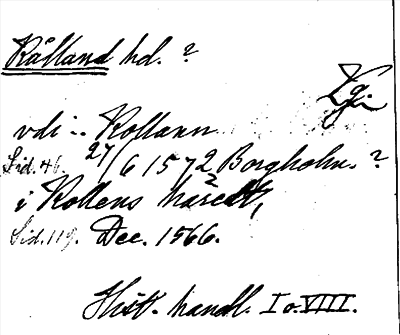 Rålland hd. ?
vdi :. Rollann
Sid. 46. 27/6 1572 Borgholm. ?
i Rollens härett,
Sid. 119. Dec. 1566.
Hist. handl. I o. VIII.